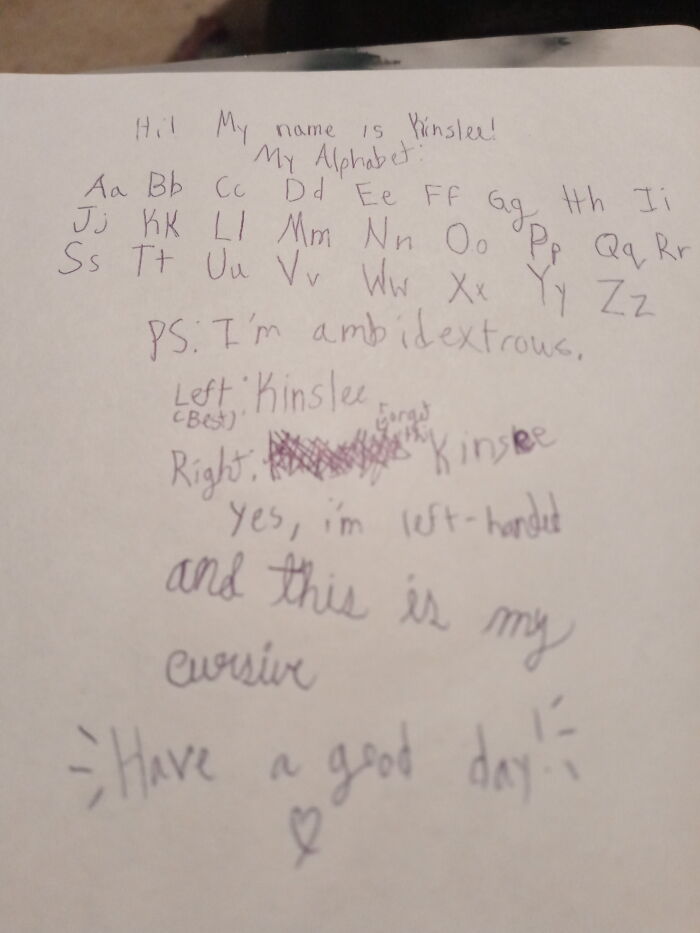 Hi! My name is Kinslee!
My Alphabet:
Aa Bb Cc Dd Ee Ff Gg Hh Ii
Jj Kk Ll Mm Nn Oo Pp Qq Rr
Ss Tt Uu Vv Ww Xx Yy Zz
PS: I'm ambidextrous.
Left: Kinslee
(Best)
Forget
this
Right: Kinslee
Yes, i'm left-handed
and this is my
cursive
Have a good day!